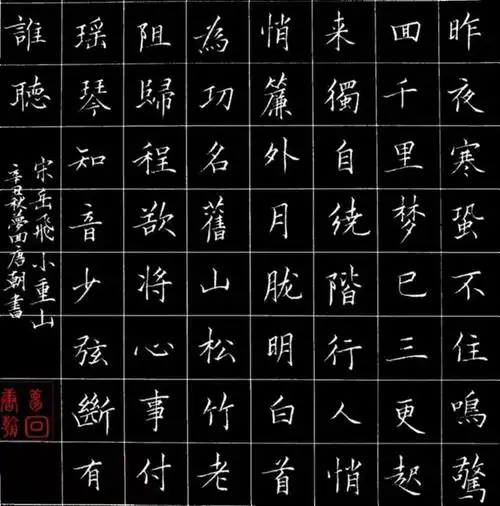 昨夜寒蛩不住鳴驚
囬千里梦已三更起
来獨自绕階行人悄
悄簾外月胧明白首
為功名舊山松竹老
阻歸程欲将心事付
瑶琴知音少弦斷有
誰聽
宋岳飛小重山
辛丑秋夢回唐朝書